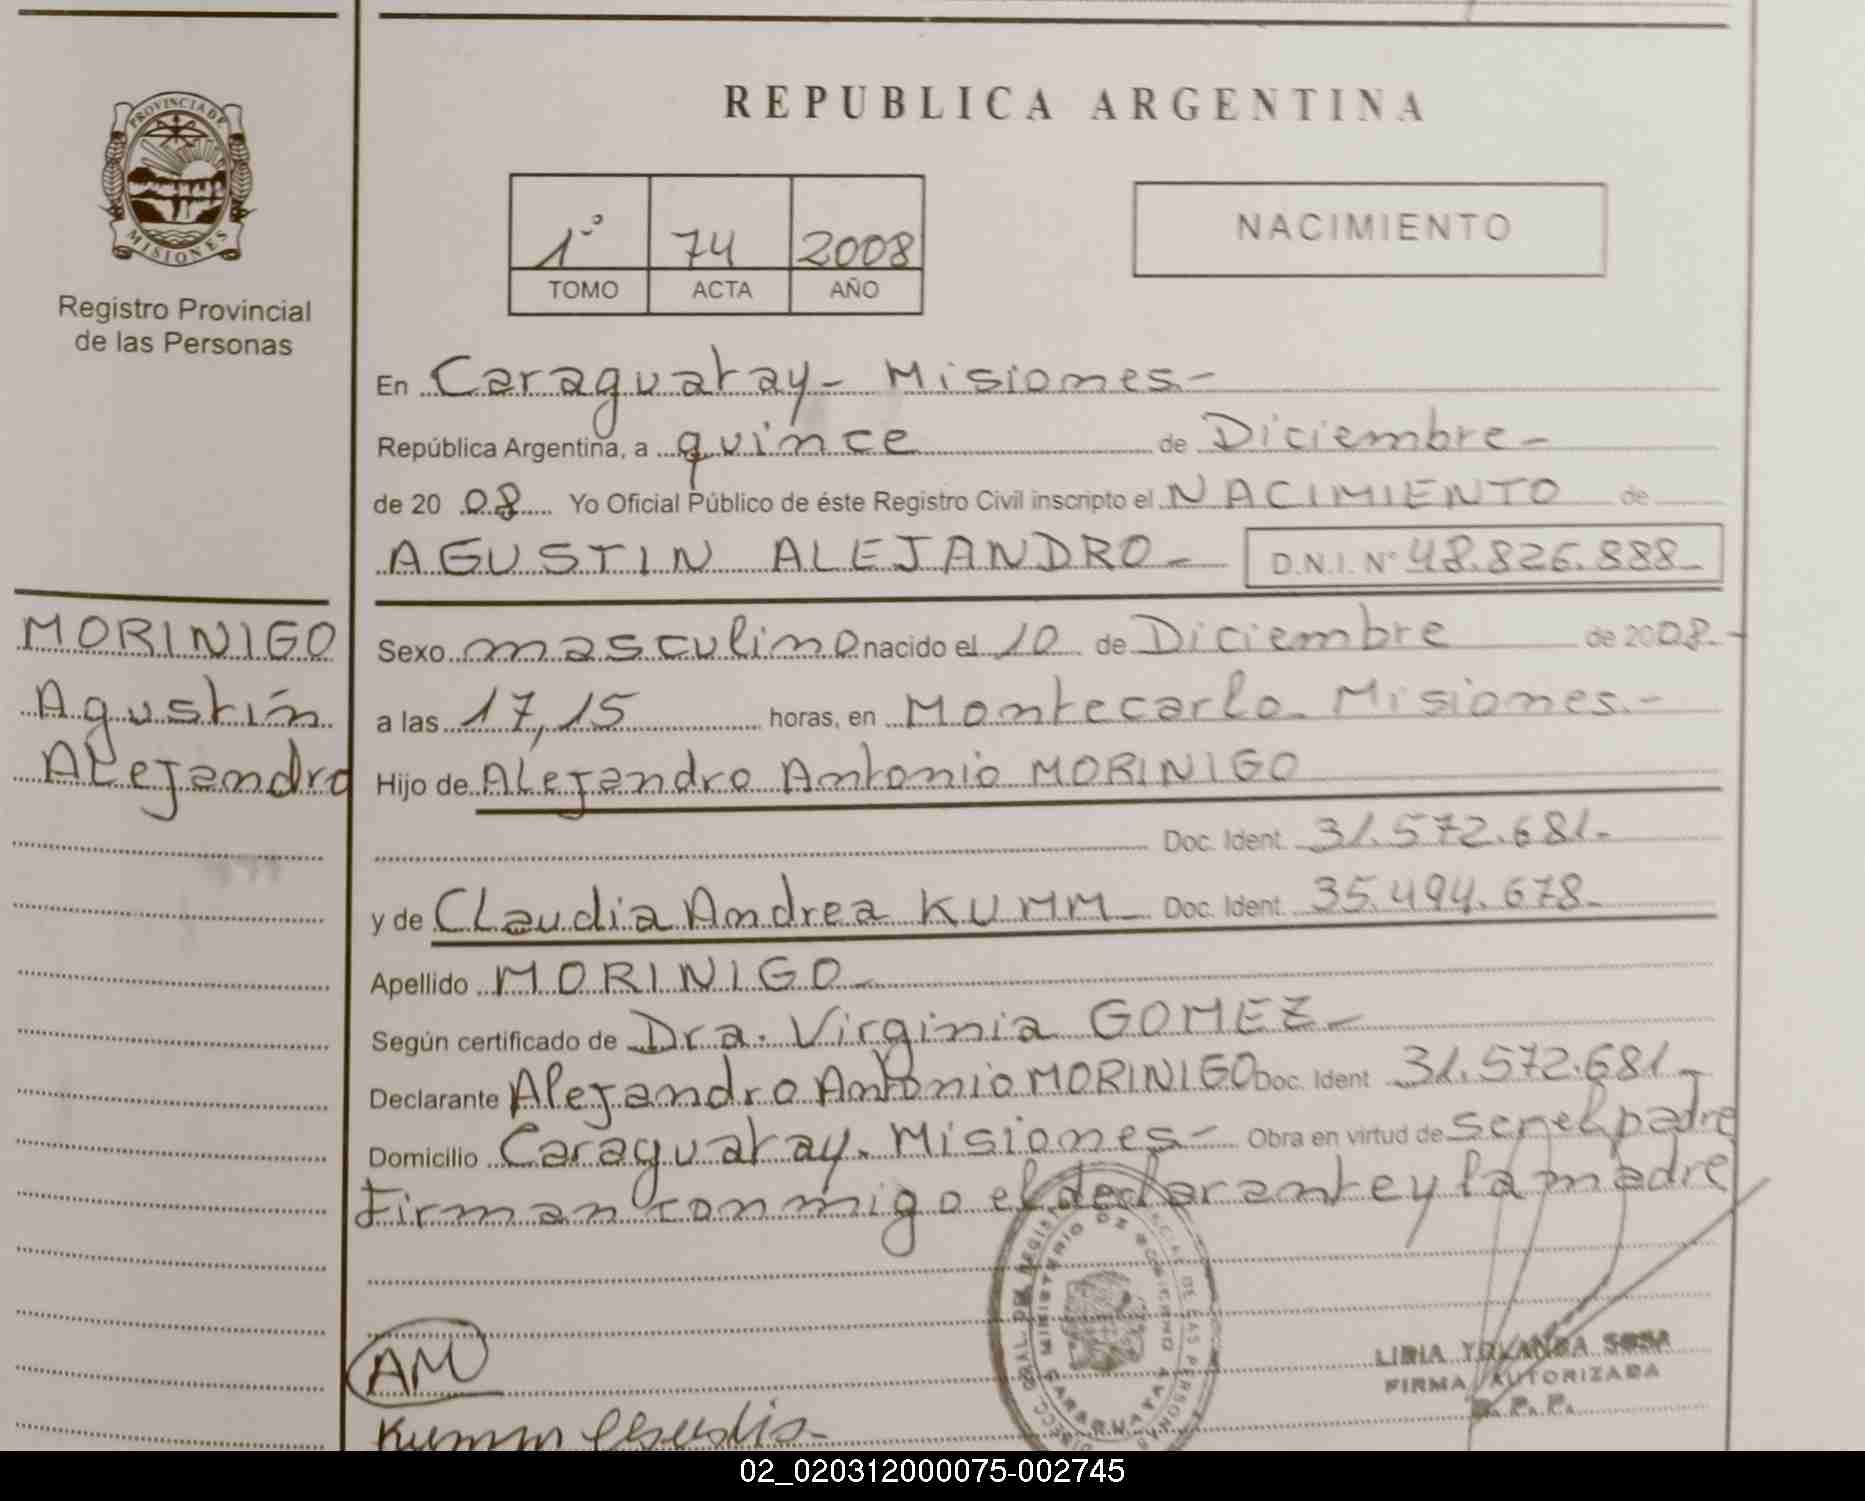 REPUBLICA ARGENTINA
PROVINCIA DE
MISIONES
Registro Provincial
de las Personas
1º 74 2008
TOMO ACTA AÑO
NACIMIENTO
En Caraguatay - Misiones -
República Argentina, a quince de Diciembre -
de 20 08 Yo Oficial Público de éste Registro Civil inscripto el NACIMIENTO de
AGUSTIN ALEJANDRO - D.N.I. Nº 48.826.888 -
MORINIGO
Agustín
Alejandro
Sexo masculino nacido el 10 de Diciembre de 2008 -
a las 17,15 horas, en Montecarlo - Misiones. -
Hijo de Alejandro Antonio MORINIGO
Doc. Ident. 31.572.681 -
y de Claudia Andrea KUMM - Doc. Ident. 35.494.678 -
Apellido MORINIGO -
Según certificado de Dra. Virginia GOMEZ -
Declarante Alejandro Antonio MORINIGO Doc. Ident 31.572.681 -
Domicilio Caraguatay. Misiones - Obra en virtud de ser el padre
Firman conmigo el declarante y la madre
AM
Kumm Claudia -
MINISTERIO DE GOBIERNO
CARAGUATAY
LIDIA YOLANDA SOSA
FIRMA AUTORIZADA
R. P. P.
02_020312000075-002745